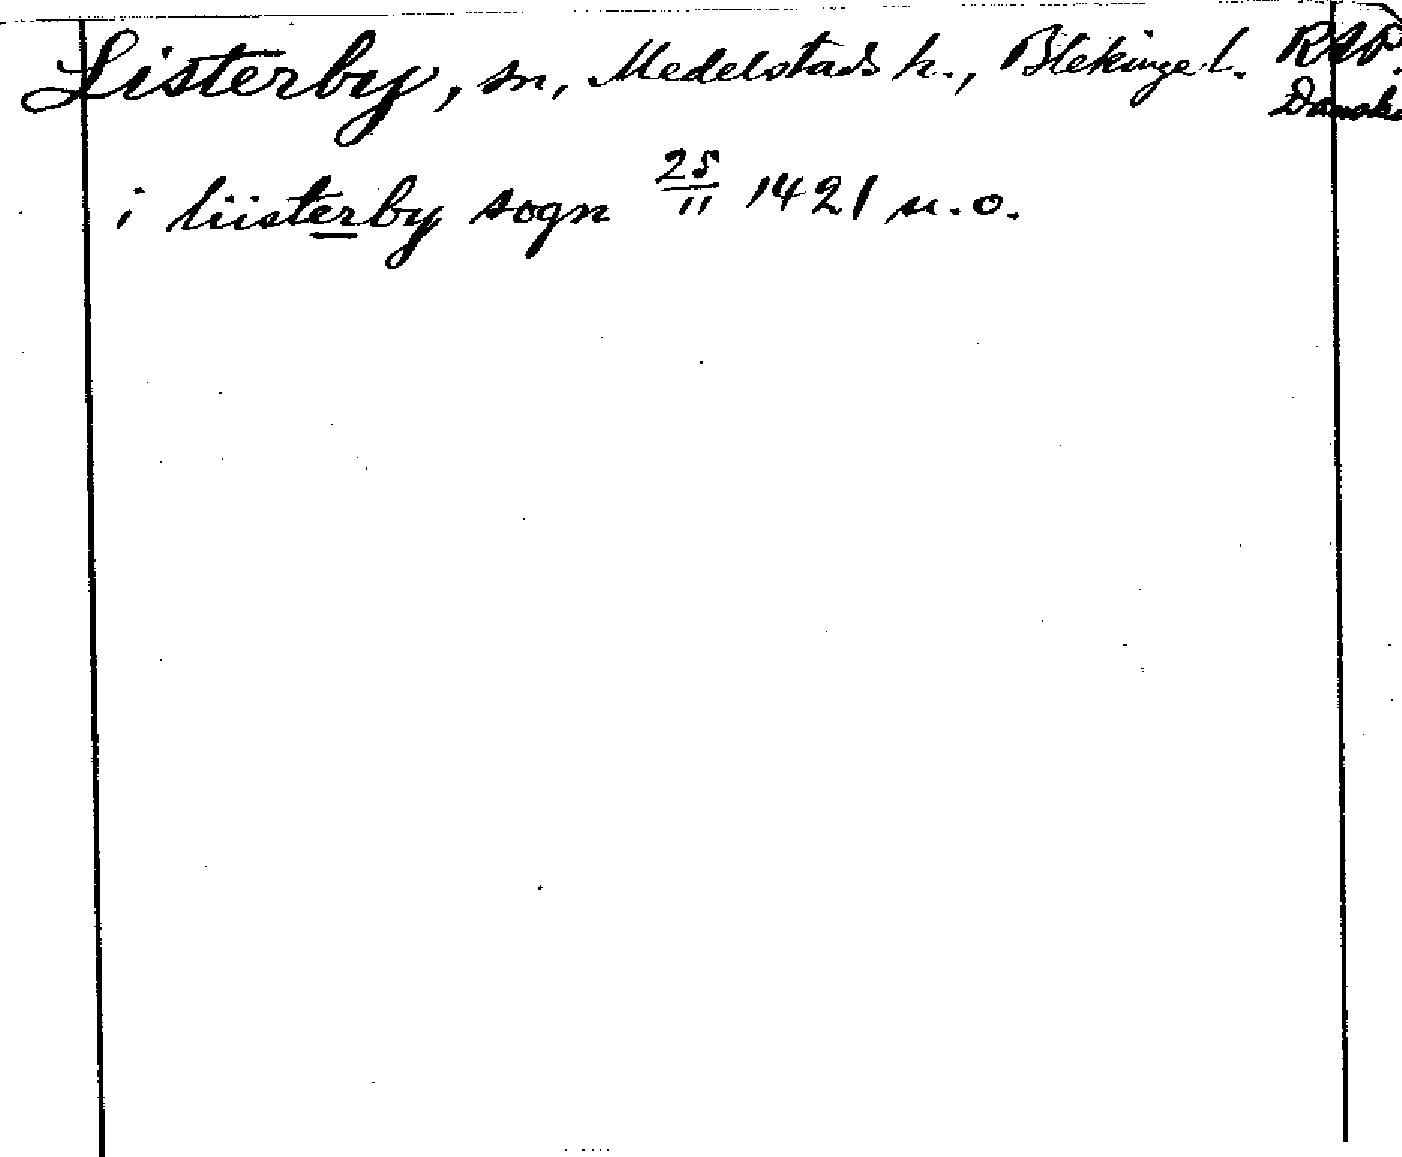 Listerby, sn, Medelstads h., Blekinge l. RAP.
Danska
i liisterby sogn 25/11 1421 u.o.